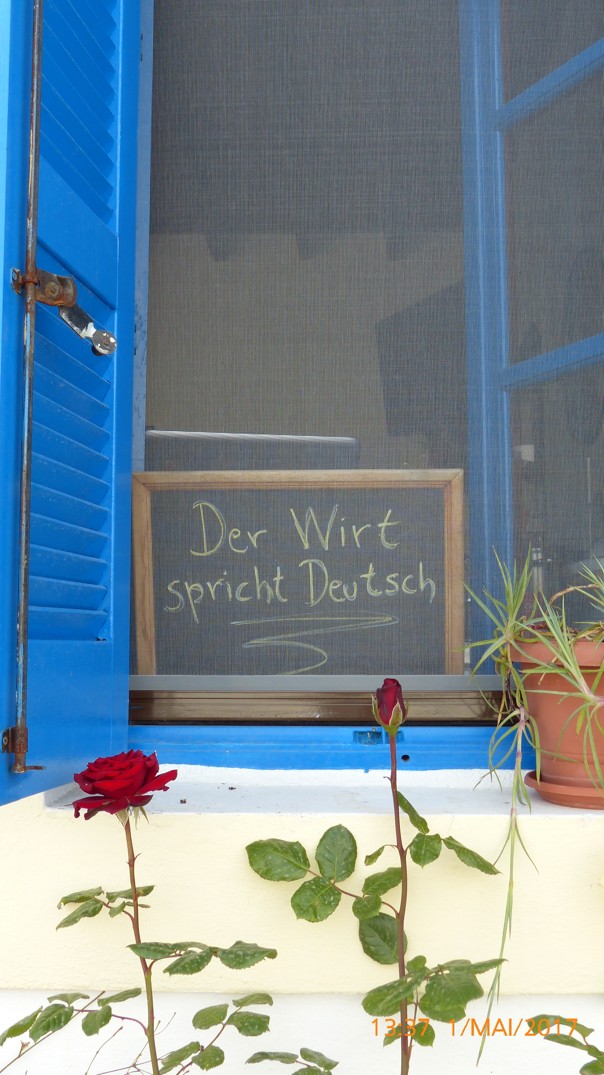 Der Wirt
spricht Deutsch
13:37 1/MAI/2017